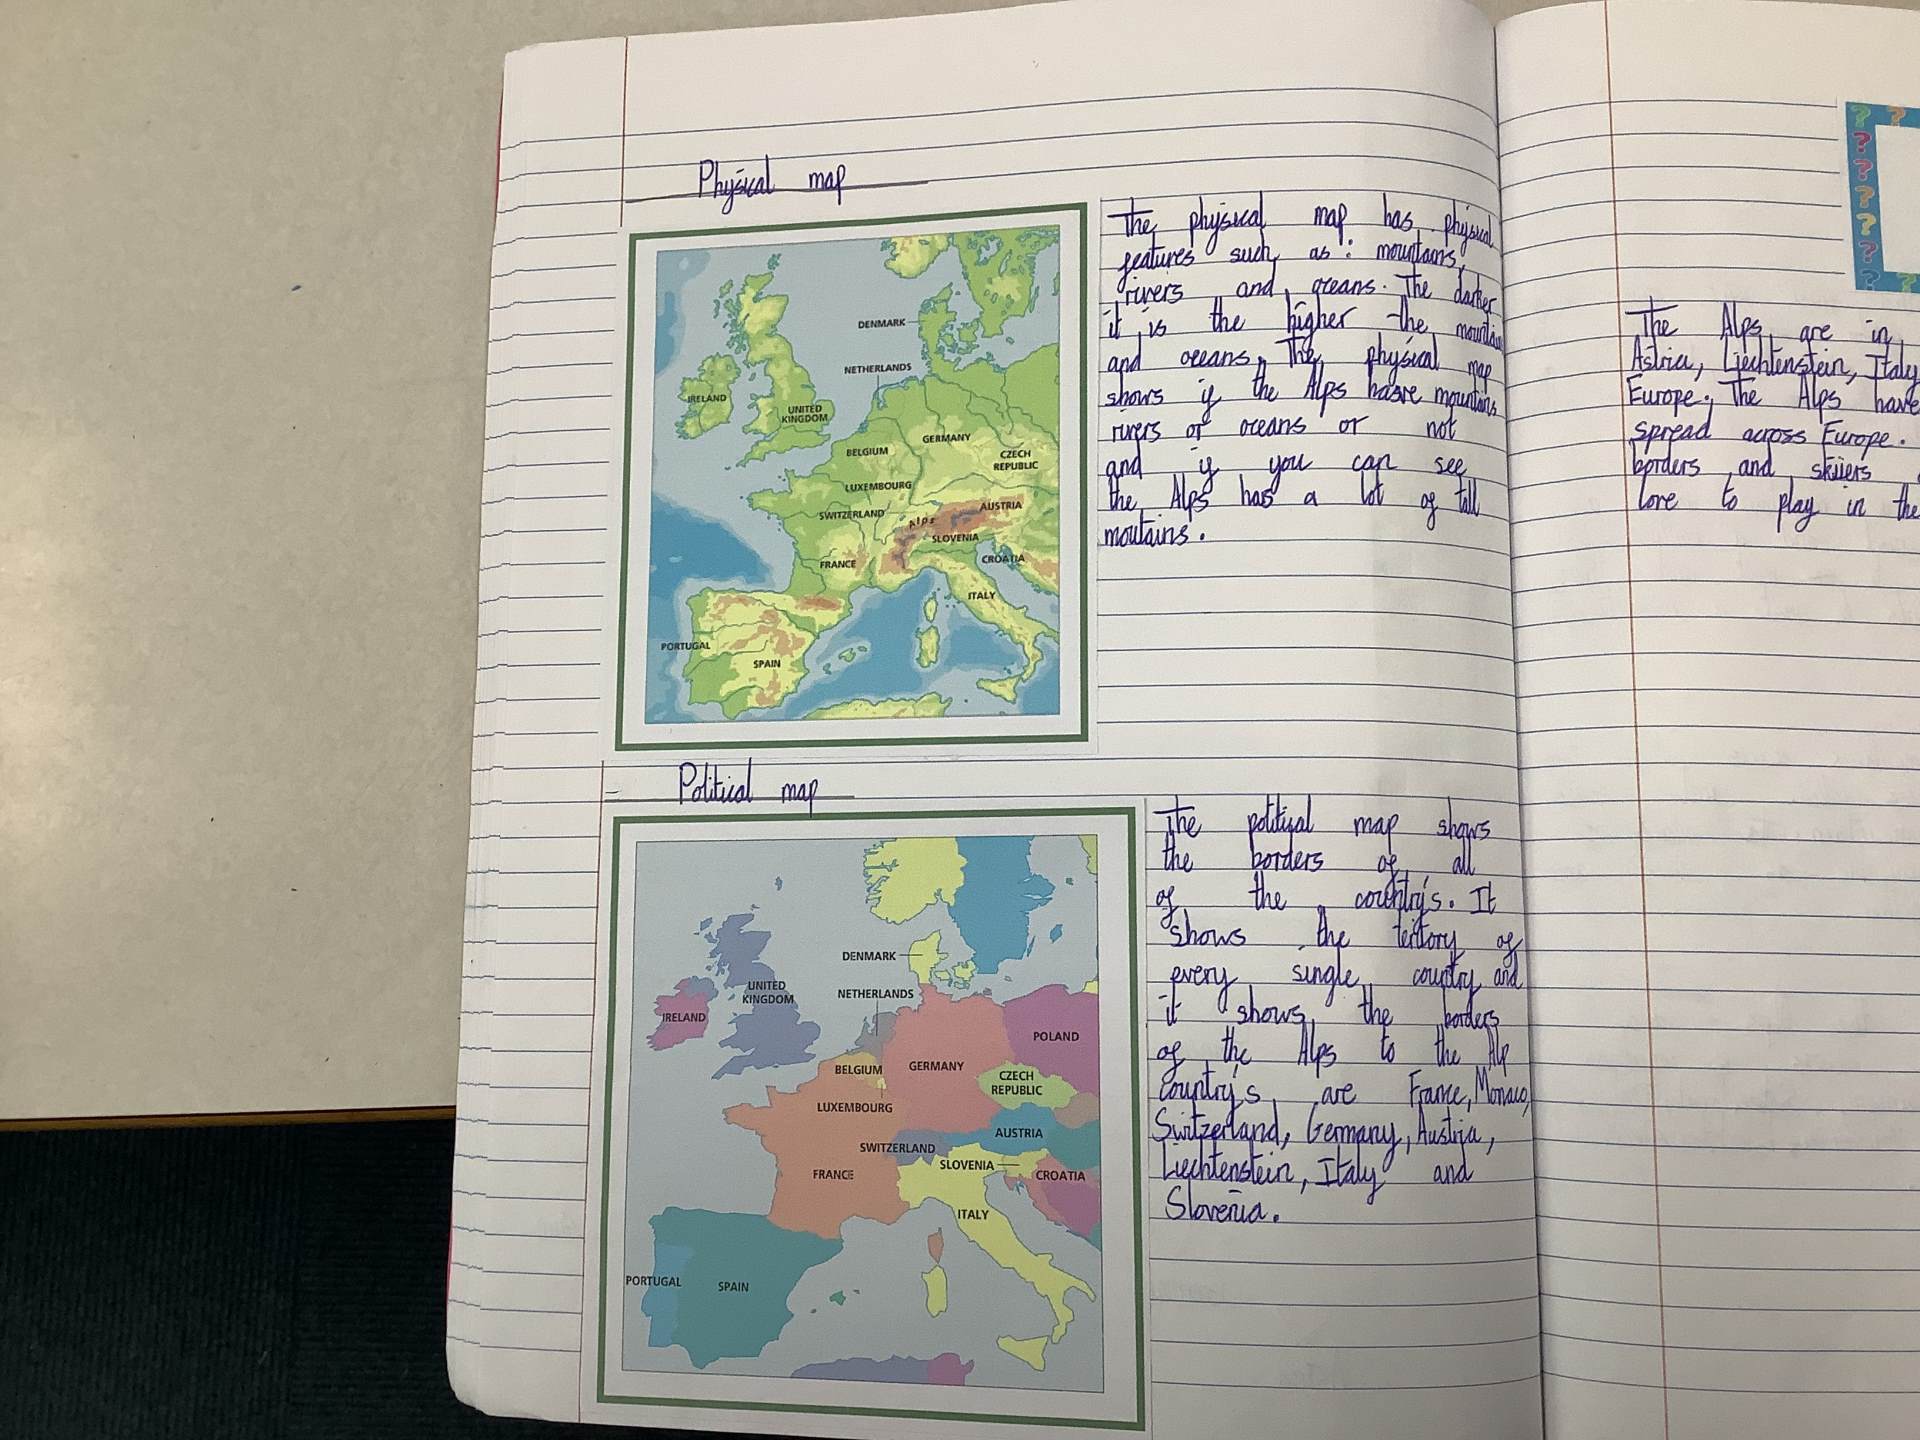 Physical map
DENMARK
NETHERLANDS
IRELAND
UNITED
KINGDOM
GERMANY
BELGIUM
CZECH
REPUBLIC
LUXEMBOURG
SWITZERLAND
Alps
AUSTRIA
SLOVENIA
FRANCE
CROATIA
ITALY
PORTUGAL
SPAIN
The physical map has physical
features such as: mountains,
rivers and oceans. The darker
it is the higher the
and oceans. The physical map
shows if the Alps mountains
rivers or oceans or not
and if you can see
the Alps has a lot of tall
moutains.
Political map
DENMARK
NETHERLANDS
UNITED
KINGDOM
IRELAND
POLAND
BELGIUM
GERMANY
CZECH
REPUBLIC
LUXEMBOURG
AUSTRIA
SWITZERLAND
SLOVENIA
FRANCE
CROATIA
ITALY
PORTUGAL
SPAIN
The map shows
the borders of all
of the country's. It
shows the of
every single country and
it shows the borders
of the Alps to the Alp
country's are France, Monaco,
Switzerland, Germany, Austria,
Liechtenstein, Italy and
Slovenia.
? ?
?
?
?
?
?
? ?
The Alps are in
Astria, Liechtenstein, Italy
Europe. The Alps have
spread across Europe.
borders and skiiers
love to play in the